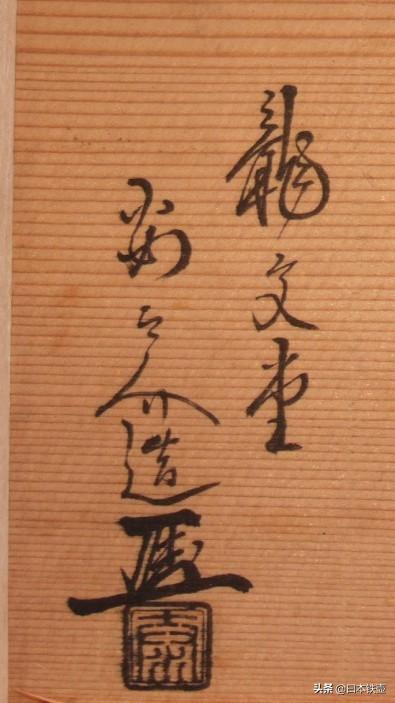 龍文堂
安之介造
头条 @日本铁壶